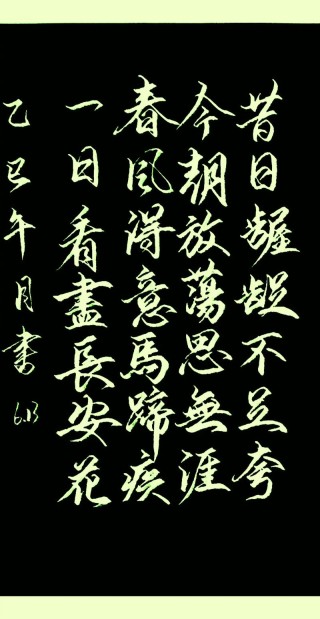 昔日龌龊不足夸
今朝放蕩思無涯
春风得意馬蹄疾
一日看盡長安花
乙巳午月書 6.13